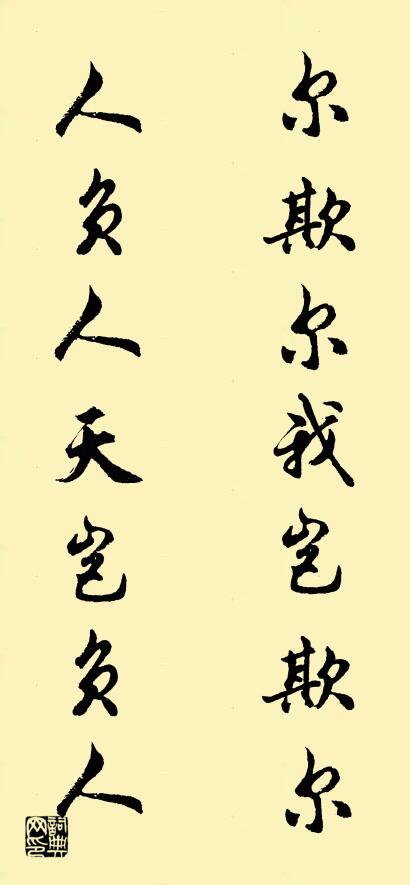 尔欺尔我岂欺尔
人负人天岂负人
詞典网印